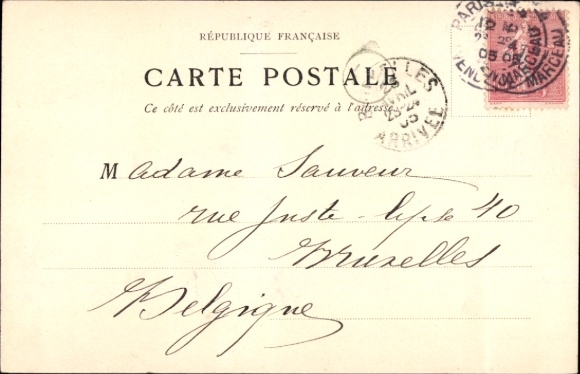 RÉPUBLIQUE FRANÇAISE
CARTE POSTALE
Ce côté est exclusivement réservé à l'adresse.
BRUXELLES
ARRIVÉE
PARIS
MARCEAU
Madame Sauveur
rue Juste-lipse 40
Bruxelles
Belgique